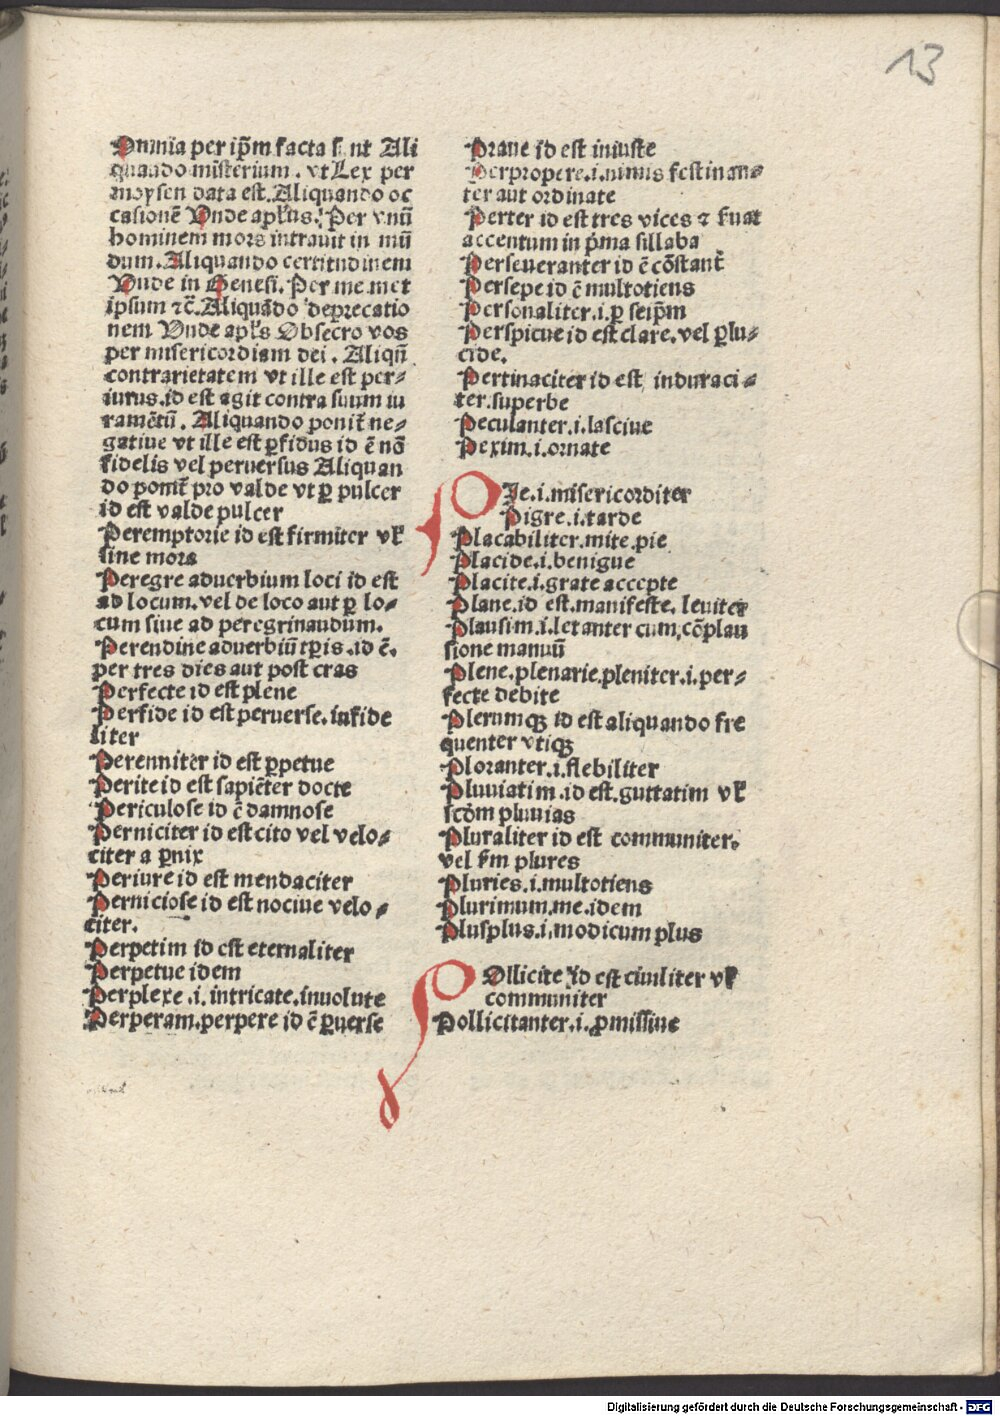 13
Omnia per ip̄m facta sunt Ali
quando misterium. vt Lex per
moysen data est. Aliquando oc
casionē Vnde apl's. Per vnū
hominem mors intrauit in mū
dum. Aliquando certitudinem
Vnde in Genesi. Per me met
ipsum ⁊c̄. Aliquādo deprecatio
nem Vnde apl's Obsecro vos
per misericordiam dei. Aliqñ
contrarietatem vt ille est per⸗
iurus. id est agit contra suum iu
ramētū. Aliquando ponit̄ ne⸗
gatiue vt ille est ꝑfidus id ē nō
fidelis vel peruersus Aliquan
do ponit̄ pro valde vt ꝑ pulcer
id est valde pulcer
Peremptorie id est firmiter vł
sine mora
Peregre aduerbium loci id est
ad locum. vel de loco aut ꝑ lo⸗
cum siue ad peregrinandum.
Perendine aduerbiū tꝑis. id ē.
per tres dies aut post cras
Perfecte id est plene
Perfide id est peruerse. infide
liter
Perenniter id est ꝑpetue
Perite id est sapiēter docte
Periculose id ē damnose
Perniciter id est cito vel velo⸗
citer a ꝑnix
Periure id est mendaciter
Perniciose id est nociue velo⸗
citer.
Perpetim id est eternaliter
Perpetue idem
Perplexe. i. intricate. inuolute
Perperam. perpere id ē ꝑuerse
Praue id est iniuste
Perpropere. i. nimis festinan⸗
ter aut ordinate
Perter id est tres vices ⁊ fuat
accentum in p̄ma sillaba
Perseueranter id ē cōstant̄
Persepe id ē multotiens
Personaliter. i. ꝑ seip̄m
Perspicue id est clare. vel ꝑlu⸗
cide.
Pertinaciter id est induraci⸗
ter. superbe
Peculanter. i. lasciue
Pexim. i. ornate
PIe. i. misericorditer
Pigre. i. tarde
Placabiliter. mite. pie
Placide. i. benigue
Placite. i. grate accepte
Plane. id est. manifeste. leuiter
Plausim. i. letanter cum, cōplau
sione manuū
Plene. plenarie. pleniter. i. per⸗
fecte debite
Plerumqꝫ id est aliquando fre
quenter vtiqꝫ
Ploranter. i. flebiliter
Pluuiatim. id est. guttatim vł
scḋm pluuias
Pluraliter id est communiter.
vel ẜm plures
Pluries. i. multotiens
Plurimum. me. idem
Plusplus. i. modicum plus
POllicite id est ciuiliter vł
communiter
Pollicitanter. i. ꝓmissiue
Digitalisierung gefördert durch die Deutsche Forschungsgemeinschaft - DFG